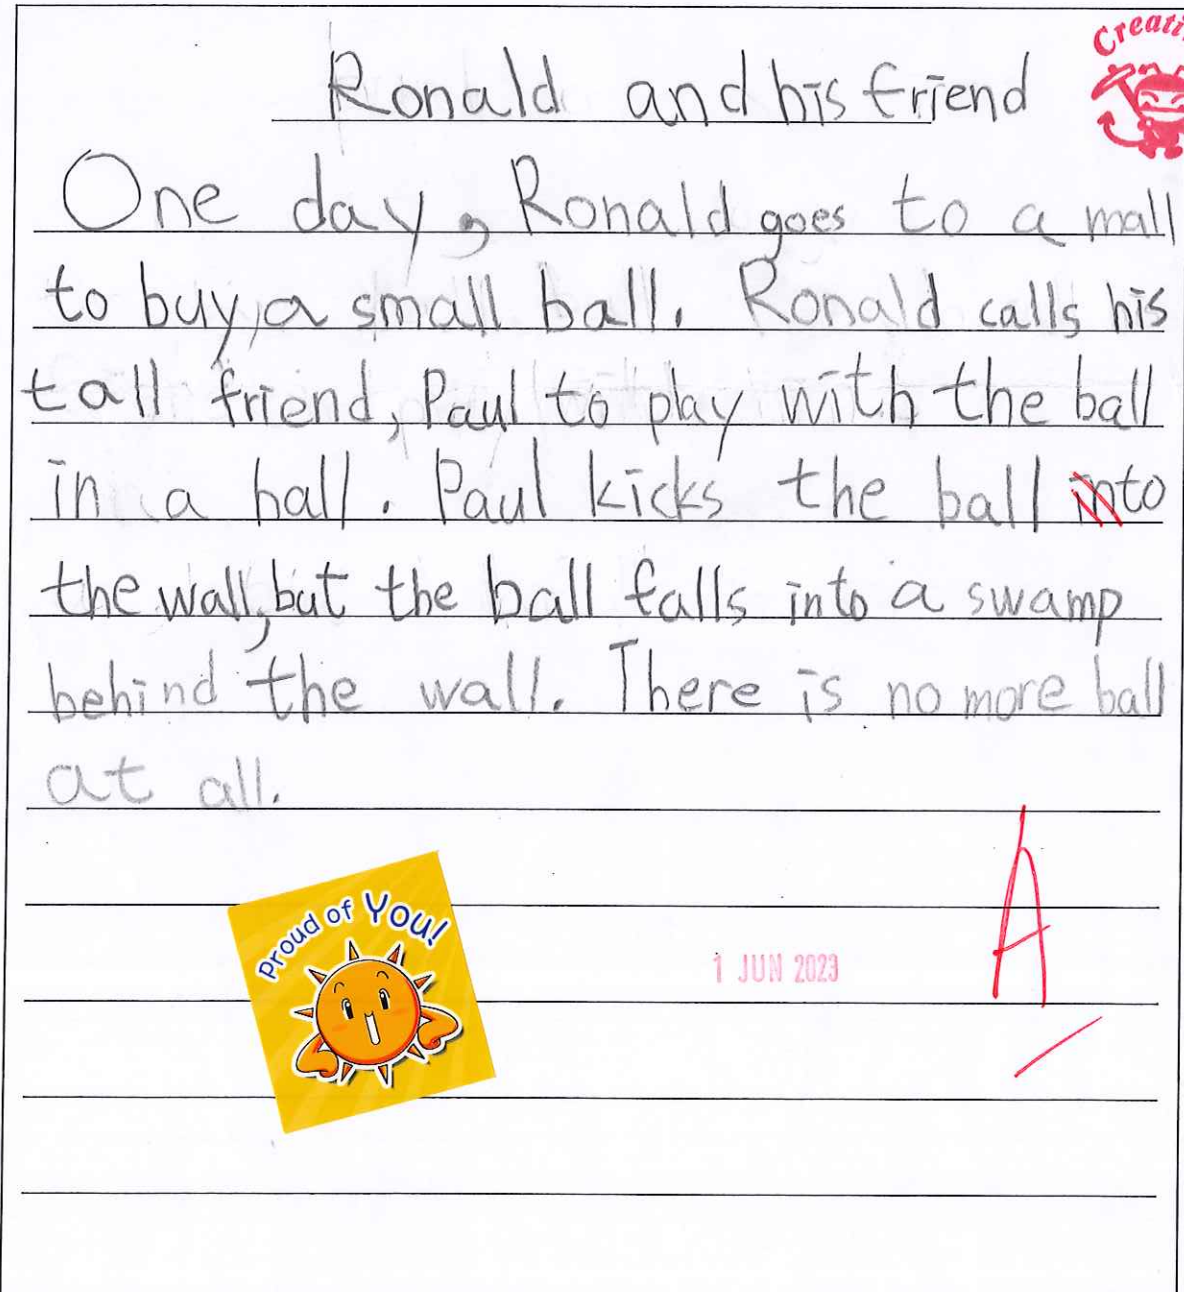 Creati
Ronald and his friend
One day, Ronald goes to a mall
to buy a small ball. Ronald calls his
tall friend, Paul to play with the ball
in a hall. Paul kicks the ball into
the wall, but the ball falls into a swamp
behind the wall. There is no more ball
at all.
Proud of You!
1 JUN 2023
A